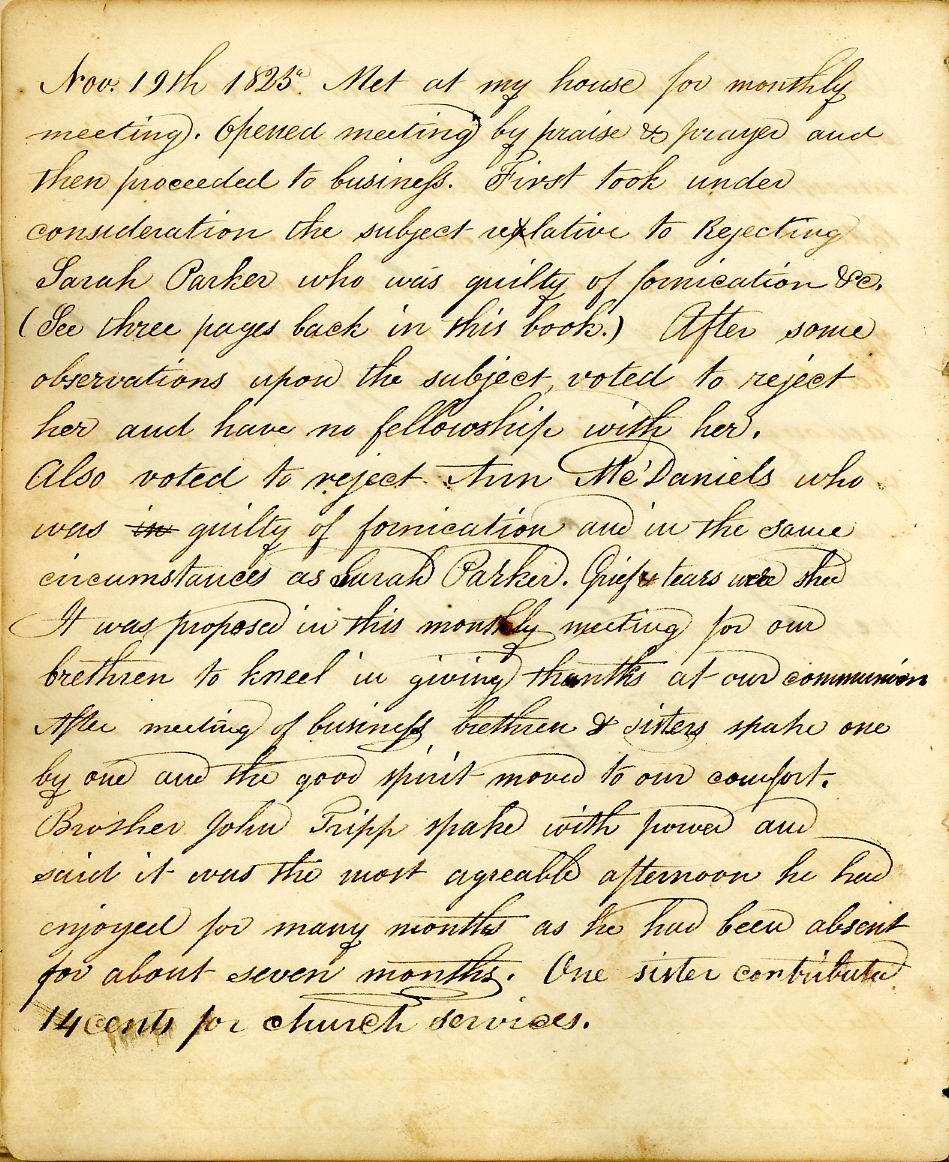 Nov. 19th 1825. Met at my house for monthly
meeting. Opened meeting by praise & prayer and
then proceeded to business. First took under
consideration the subject relative to Rejecting
Sarah Parker who was guilty of fornication &c.
(See three pages back in this book.) After some
observations upon the subject, voted to reject
her and have no fellowship with her.
Also voted to reject Ann Mc'Daniels who
was in guilty of fornication and in the same
circumstances as Sarah Parker. Grief & tears were shed
It was proposed in this monthly meeting for our
brethren to kneel in giving thanks at our communion
After meeting of business brethren & sisters spake one
by one and the good spirit moved to our comfort.
Brother John Tripp spake with power and
said it was the most agreeable afternoon he had
enjoyed for many months as he had been absent
for about seven months. One sister contributed
14 cents for church services.